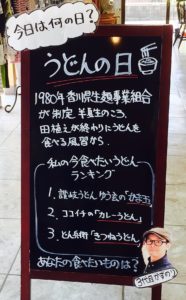 今日は何の日?
うどんの日
1980年香川県生麺事業組合
が制定。半夏生のころ、
田植えが終わりにうどんを
食べる風習から。
私の今食べたいうどん
ランキング
1. 讃岐うどん
2. ココイチの「カレーうどん」
3. どん兵衛「きつねうどん」
あなたの食べたいものは?
3代目かずの